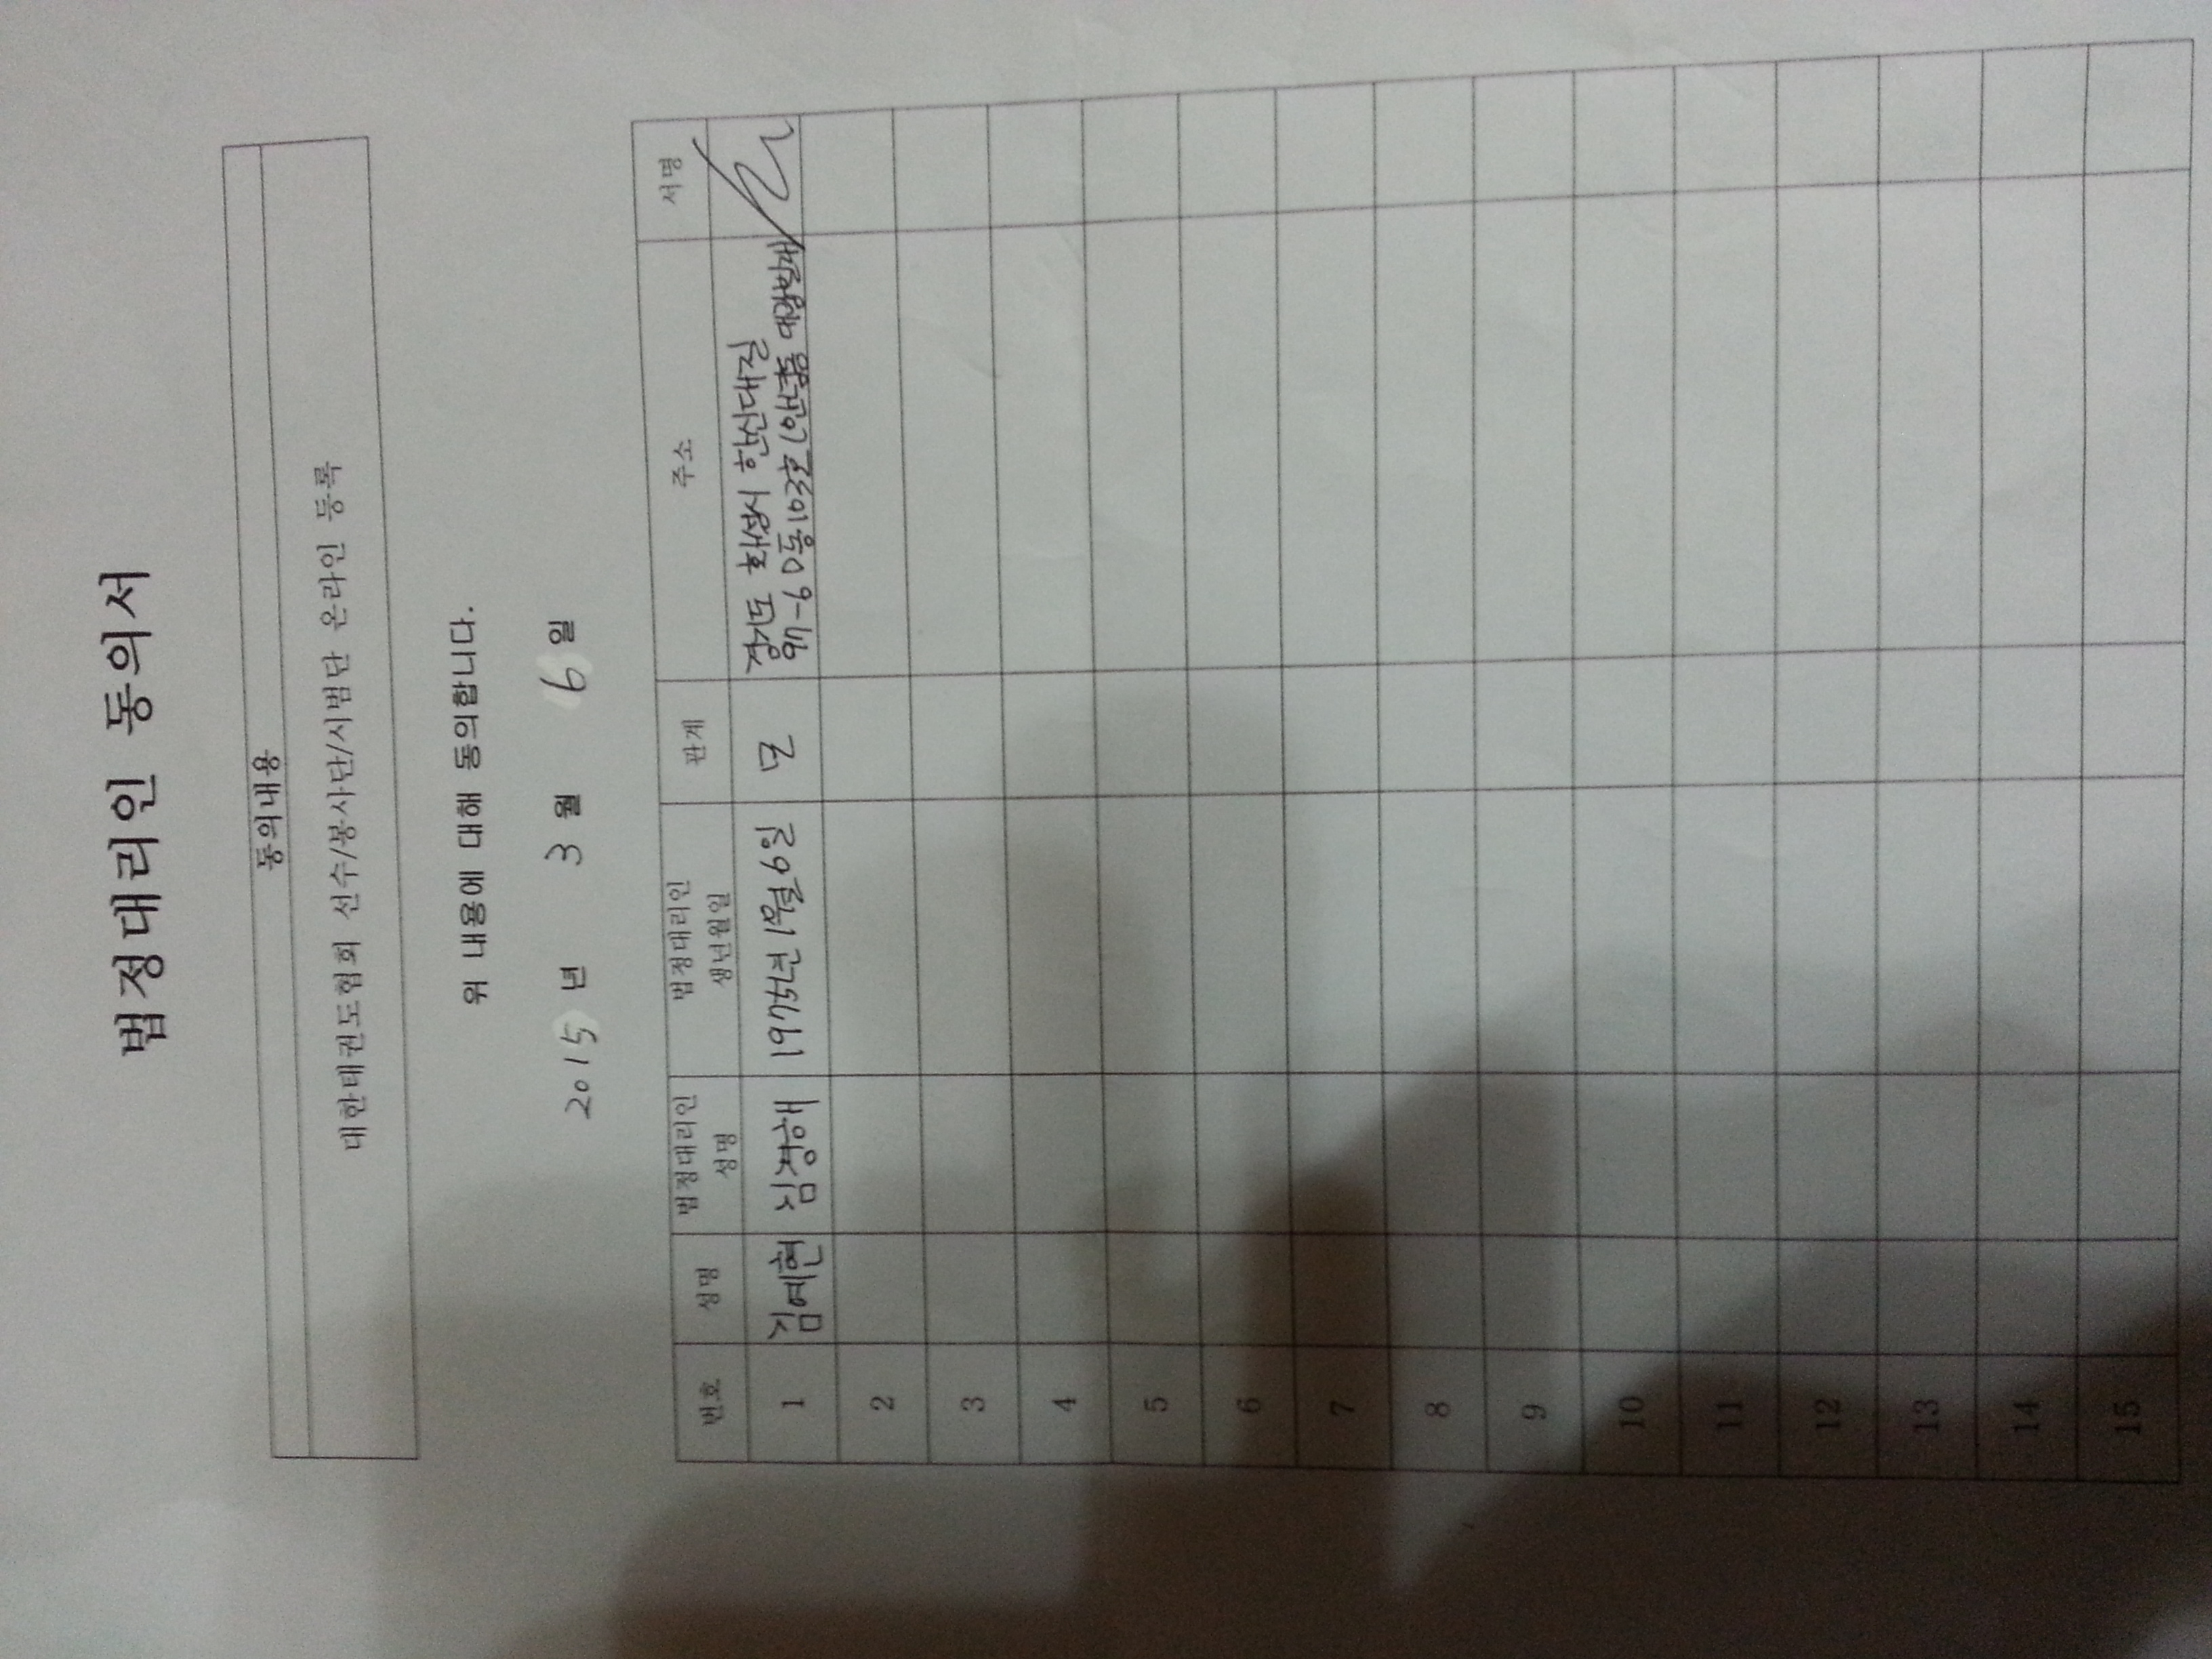 법정대리인 동의서
동의내용
대한태권도협회 선수/봉사단/시범단 온라인 등록
위 내용에 대해 동의합니다.
2015 년 3 월 6 일
번호 성명 법정대리인 성명 법정대리인 생년월일 관계 주소 서명
1 김예현 심정애 1975년 1월 6일 모 경기도 화성시 효산대길
9-6 동이
2
3
4
5
6
7
8
9
10
11
12
13
14
15